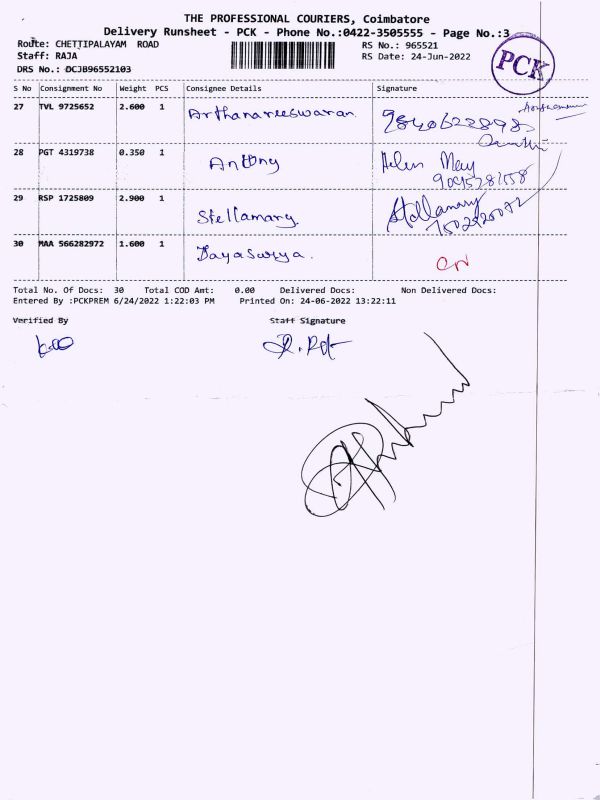 THE PROFESSIONAL COURIERS, Coimbatore
Delivery Runsheet - PCK - Phone No.:0422-3505555 - Page No.:3
Route: CHETTIPALAYAM ROAD
RS No.: 965521
Staff: RAJA
RS Date: 24-Jun-2022
DRS No.: DCJB96552103
PCK
S No Consignment No Weight PCS Consignee Details Signature
27 TVL 9725652 2.600 1 Arthanareeswaran
28 PGT 4319738 0.350 1 Antony Helen Mary
29 RSP 1725809 2.900 1 Stellamary Stellamary
30 MAA 566282972 1.600 1 Jayasurya.
Total No. Of Docs: 30 Total COD Amt: 0.00 Delivered Docs: Non Delivered Docs:
Entered By :PCKPREM 6/24/2022 1:22:03 PM Printed On: 24-06-2022 13:22:11
Verified By Staff Signature